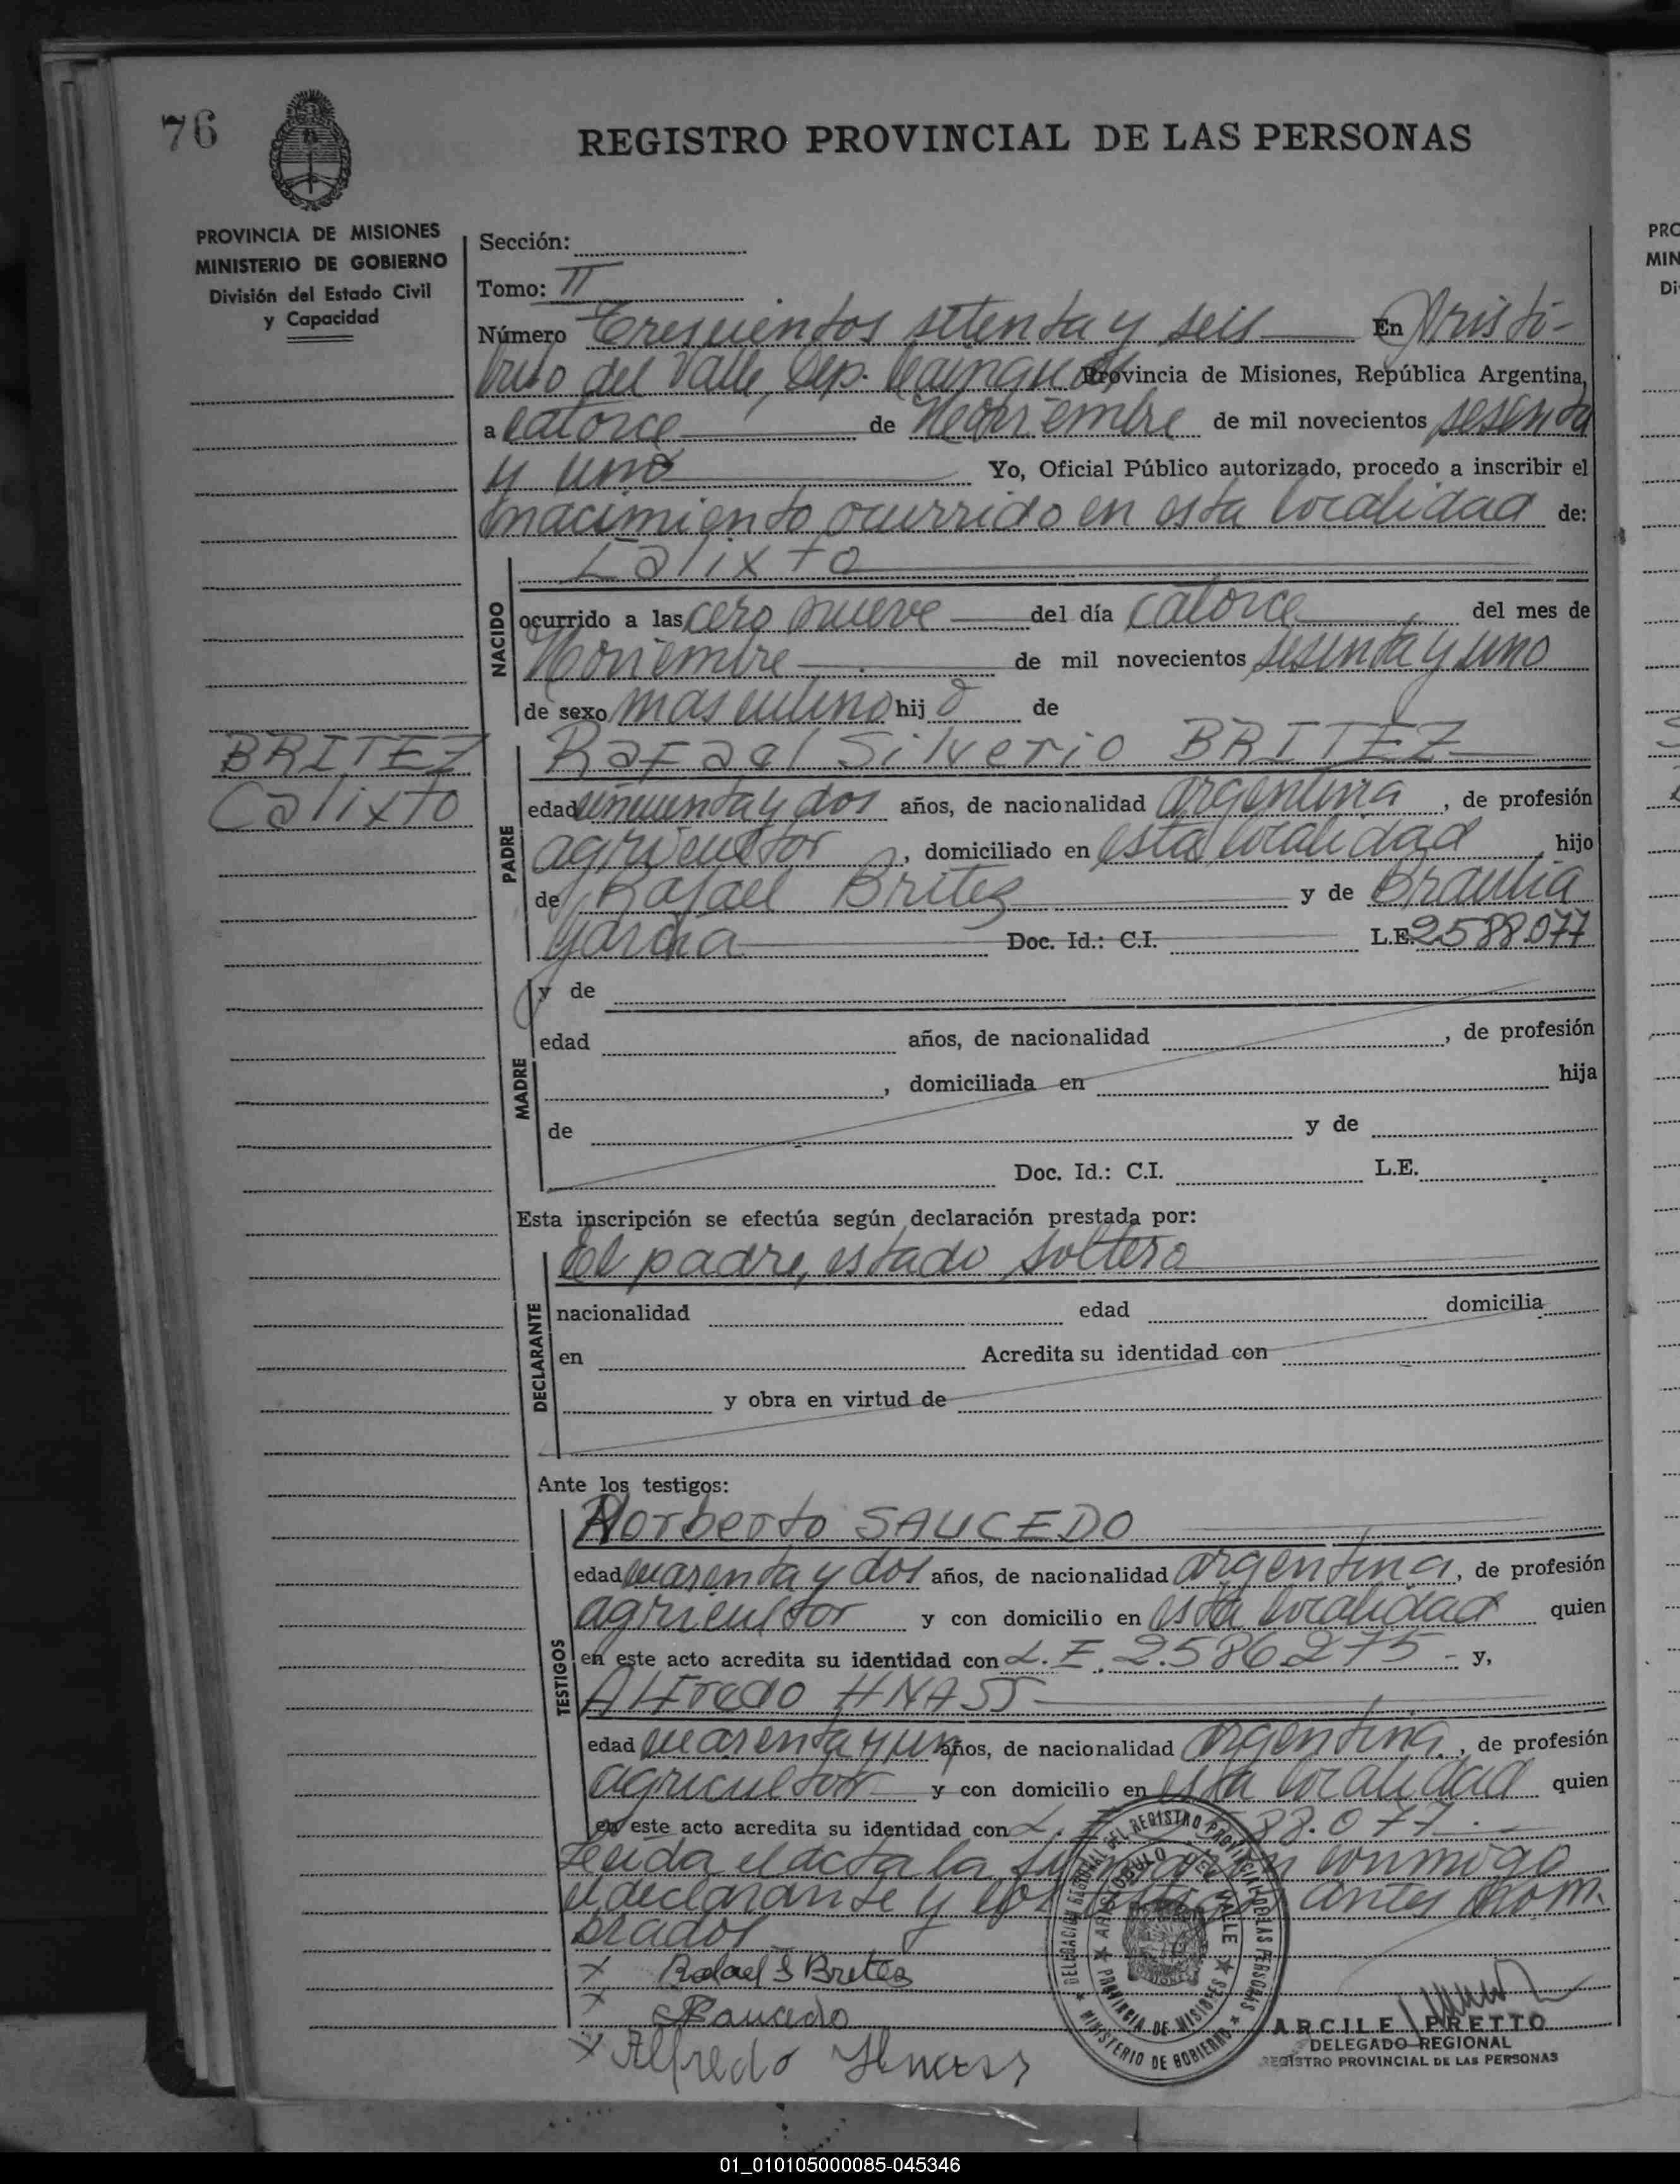 76
REGISTRO PROVINCIAL DE LAS PERSONAS
PROVINCIA DE MISIONES
MINISTERIO DE GOBIERNO
División del Estado Civil
y Capacidad
Sección:
Tomo: II
Número Trescientos setenta y seis En Aristó-
bulo del Valle, Dep. Cainguás Provincia de Misiones, República Argentina,
a catorce de Noviembre de mil novecientos sesenta
y uno Yo, Oficial Público autorizado, procedo a inscribir el
nacimiento ocurrido en esta localidad de:
Calixto
NACIDO
ocurrido a las cero nueve del día catorce del mes de
Noviembre de mil novecientos sesenta y uno
de sexo masculino hijo de
BRITEZ
Calixto
PADRE
Rafael Silverio BRITEZ
edad cincuenta y dos años, de nacionalidad argentina, de profesión
agricultor, domiciliado en esta localidad hijo
de Rafael Britez y de Braulia
Garcia Doc. Id.: C.I. L.E. 2588.077
MADRE
y de
edad años, de nacionalidad , de profesión
, domiciliada en hija
de y de
Doc. Id.: C.I. L.E.
Esta inscripción se efectúa según declaración prestada por:
DECLARANTE
El padre, estado soltero
nacionalidad edad domicilia
en Acredita su identidad con
y obra en virtud de
Ante los testigos:
TESTIGOS
Norberto SAUCEDO
edad cuarenta y dos años, de nacionalidad argentina, de profesión
agricultor y con domicilio en esta localidad quien
en este acto acredita su identidad con L.E. 2.586.275 - y,
Alfredo HNASS
edad cuarenta y un años, de nacionalidad argentina, de profesión
agricultor y con domicilio en esta localidad quien
en este acto acredita su identidad con L. 88.077
Leida el acta la conmigo
el declarante y los testigos antes nom-
brados
x Rafael S Britez
x Saucedo
x Alfredo Hnass
DELEGACION REGIONAL DEL REGISTRO PROVINCIAL DE LAS PERSONAS
ARISTOBULO DEL VALLE
PROVINCIA DE MISIONES
MINISTERIO DE GOBIERNO
ARCILE PRETTO
DELEGADO REGIONAL
REGISTRO PROVINCIAL DE LAS PERSONAS
PRO
MIN
Di
01_010105000085-045346